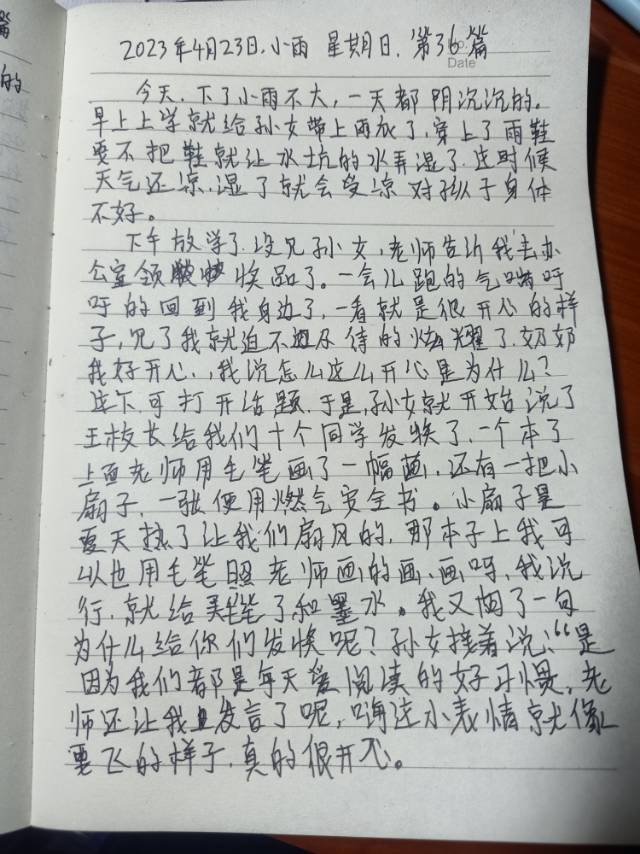 篇
的
2023年4月23日.小雨 星期日.第36篇
Date
今天.下了小雨不大,一天都阴沉沉的.
早上上学就给孙女带上雨衣了.穿上了雨鞋
要不把鞋就让水坑的水弄湿了.这时候
天气还凉.湿了就会受凉对孩子身体
不好。
下午放学了.没见孙女,老师告诉我去办
公室领奖品了。一会儿跑的气喘吁
吁的回到我身边了,一看就是很开心的样
子,见了我就迫不及待的炫耀了.奶奶
我好开心.,我说怎么这么开心是为什么?
这下可打开话题.于是,孙女就开始说了
王校长给我们十个同学发奖了.一个本了
上面老师用毛笔画了一幅画.还有一把小
扇子.一张使用燃气安全书。小扇子是
夏天热了让我们扇风的.那本子上我可
以也用毛笔照老师画的画.画呀.我说
行.就给笔了和墨水。我又问了一句
为什么给你们发奖呢?孙女接着说:“是
因为我们都是每天爱阅读的好习惯.老
师还让我发言了呢,嗨这小表情就像
要飞的样子.真的很开心。